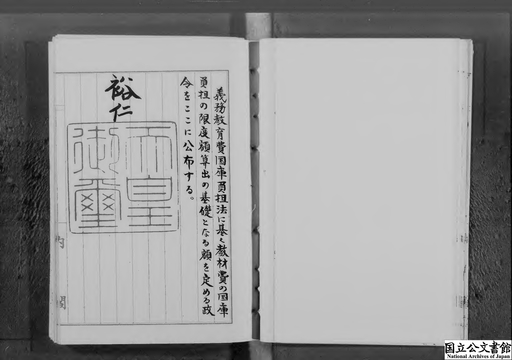 義務教育費国庫負担法に基く教材費の国庫
負担の限度額算出の基礎となる額を定める政
令をここに公布する。
裕仁
天皇
御璽
内閣
国立公文書館
National Archives of Japan